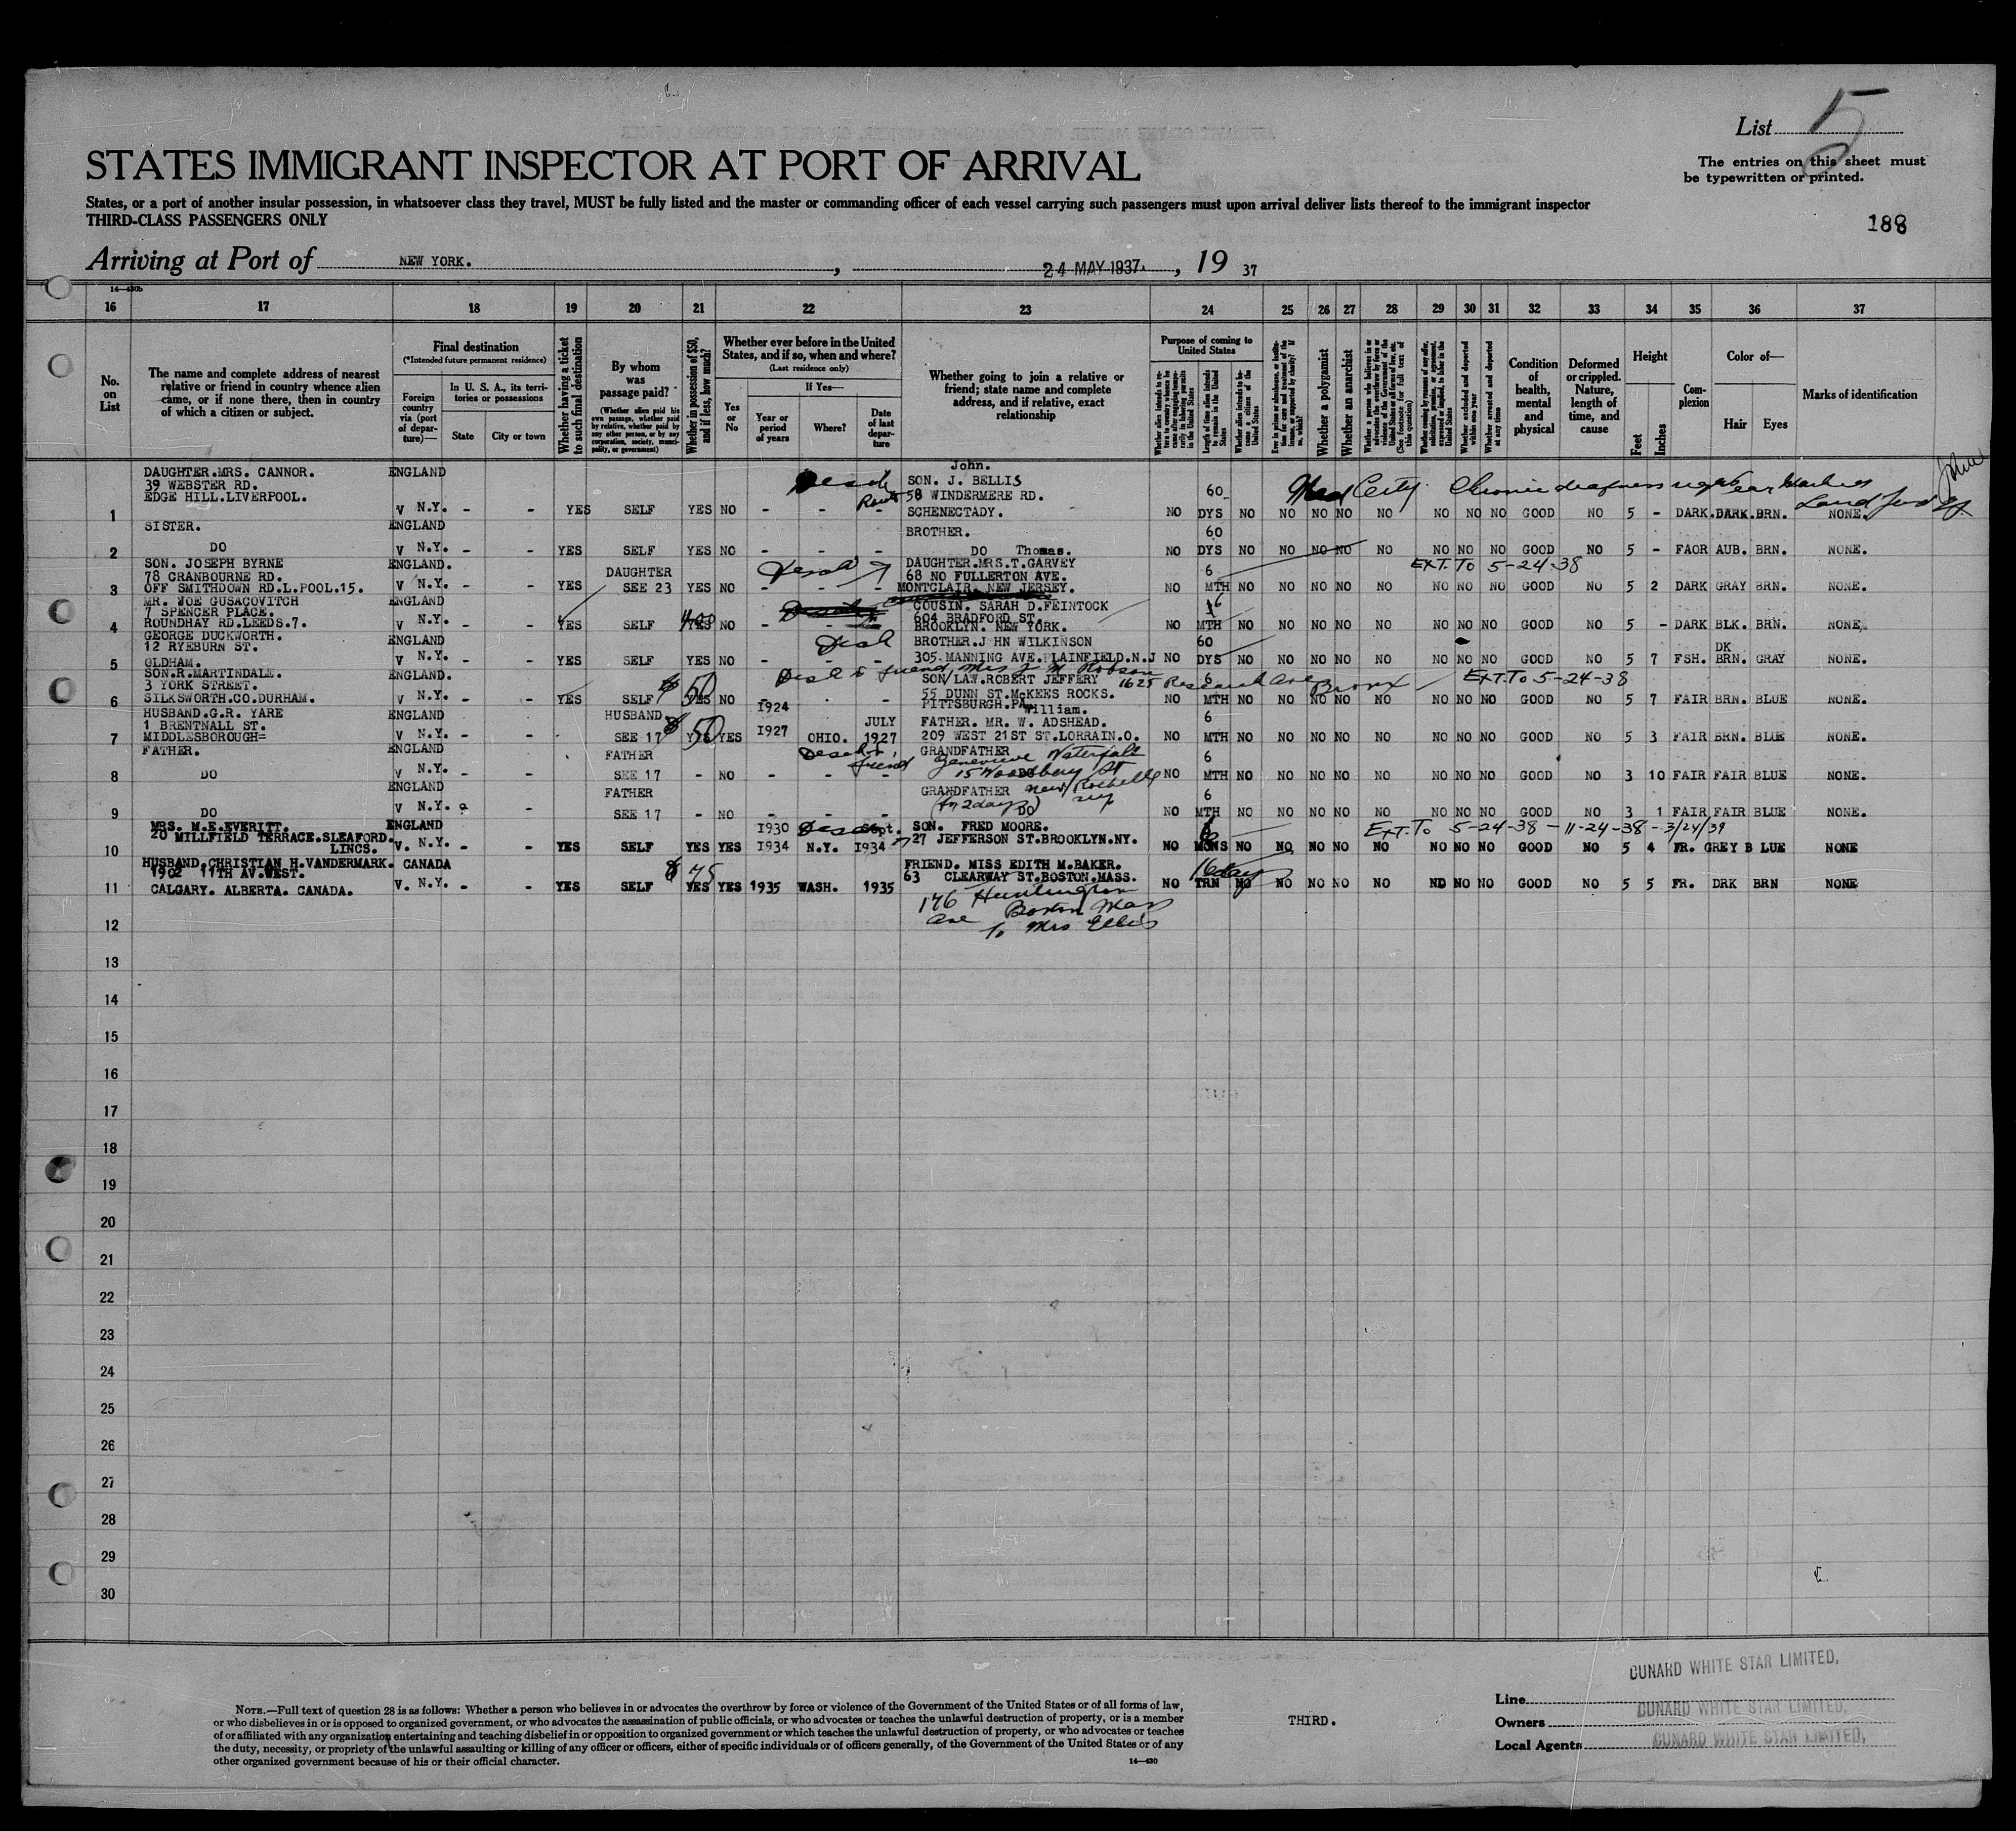 List 5
STATES IMMIGRANT INSPECTOR AT PORT OF ARRIVAL
The entries on this sheet must
be typewritten or printed.
States, or a port of another insular possession, in whatsoever class they travel, MUST be fully listed and the master or commanding officer of each vessel carrying such passengers must upon arrival deliver lists thereof to the immigrant inspector
THIRD-CLASS PASSENGERS ONLY
188
Arriving at Port of NEW YORK. , 24 MAY 1937. , 19 37
14—430b
16 17 18 19 20 21 22 23 24 25 26 27 28 29 30 31 32 33 34 35 36 37
No. on List
The name and complete address of nearest relative or friend in country whence alien came, or if none there, then in country of which a citizen or subject.
Final destination
(*Intended future permanent residence)
Foreign country via (port of departure)—
In U. S. A., its territories or possessions
State
City or town
Whether having a ticket to such final destination
By whom was passage paid?
(Whether alien paid his own passage, whether paid by relative, whether paid by any other person, or by any corporation, society, municipality, or government)
Whether in possession of $50, and if less, how much?
Whether ever before in the United States, and if so, when and where?
(Last residence only)
Yes or No
If Yes—
Year or period of years
Where?
Date of last departure
Whether going to join a relative or friend; state name and complete address, and if relative, exact relationship
Purpose of coming to United States
Length of time alien intends to remain in the United States
Whether alien intends to become a citizen of the United States
Whether a polygamist
Whether an anarchist
Whether excluded and deported within one year
Whether arrested and deported at any time
Condition of health, mental and physical
Deformed or crippled. Nature, length of time, and cause
Height
Feet
Inches
Complexion
Color of—
Hair
Eyes
Marks of identification
John.
DAUGHTER.MRS. CANNOR. ENGLAND SON. J. BELLIS
39 WEBSTER RD. 58 WINDERMERE RD. 60
EDGE HILL.LIVERPOOL. Chronic deafness right ear
1 V N.Y. - - YES SELF YES NO - - - SCHENECTADY. NO DYS NO NO NO NO NO NO NO NO GOOD NO 5 - DARK.DARK.BRN. NONE.
SISTER. ENGLAND BROTHER. 60
2 DO V N.Y. - - YES SELF YES NO - - - DO Thomas. NO DYS NO NO NO NO NO NO NO NO GOOD NO 5 - FAOR AUB. BRN. NONE.
SON. JOSEPH BYRNE ENGLAND. DAUGHTER.MRS.T.GARVEY EXT. To 5-24-38
78 CRANBOURNE RD. DAUGHTER 68 NO FULLERTON AVE. 6
3 OFF SMITHDOWN RD.L.POOL.15. V N.Y. - - YES SEE 23 YES NO - - - MONTCLAIR. NEW JERSEY. NO MTH NO NO NO NO NO NO NO NO GOOD NO 5 2 DARK GRAY BRN. NONE.
MR. JOE GUSACOVITCH ENGLAND COUSIN. SARAH D.FEINTOCK
7 SPENCER PLACE. 604 BRADFORD ST. 6
4 ROUNDHAY RD.LEEDS.7. V N.Y. - - YES SELF 400 YES BROOKLYN. NEW YORK. NO MTH NO NO NO NO NO NO NO NO GOOD NO 5 - DARK BLK. BRN. NONE.
GEORGE DUCKWORTH. ENGLAND BROTHER.J HN WILKINSON 60
12 RYEBURN ST. DK
5 OLDHAM. V N.Y. - - YES SELF YES NO - - - 305.MANNING AVE.PLAINFIELD.N.J NO DYS NO NO NO NO NO NO NO NO GOOD NO 5 7 FSH. BRN. GRAY NONE.
SON.R.MARTINDALE. ENGLAND. SON/LAW.ROBERT JEFFERY 6 EXT. To 5-24-38
3 YORK STREET. 55 DUNN ST.McKEES ROCKS. Bronx
6 SILKSWORTH.CO.DURHAM. V N.Y. - - YES SELF $50 YES NO - - - PITTSBURGH.PA. NO MTH NO NO NO NO NO NO NO NO GOOD NO 5 7 FAIR BRN. BLUE NONE.
William.
HUSBAND.G.R. YARE ENGLAND HUSBAND 1924 JULY FATHER. MR. W. ADSHEAD. 6
1 BRENTNALL ST.
7 MIDDLESBOROUGH= V N.Y. - - SEE 17 $50 YES YES 1927 OHIO. 1927 209 WEST 21ST ST.LORRAIN.O. NO MTH NO NO NO NO NO NO NO NO GOOD NO 5 3 FAIR BRN. BLUE NONE.
FATHER. ENGLAND FATHER friend GRANDFATHER Genevieve 6
8 DO V N.Y. - - SEE 17 - NO - - - DO 15 Woodbury St NO MTH NO NO NO NO NO NO NO NO GOOD NO 3 10 FAIR FAIR BLUE NONE.
ENGLAND FATHER GRANDFATHER New Rochelle 6
9 DO V N.Y. - SEE 17 - NO - - - DO (for 2 days) NY NO MTH NO NO NO NO NO NO NO NO GOOD NO 3 1 FAIR FAIR BLUE NONE.
MRS. M.E.EVERITT. ENGLAND 1930 Sept. SON. FRED MOORE. EXT. To 5-24-38 - 11-24-38 - 3/24/39
20 MILLFIELD TERRACE.SLEAFORD.
10 LINCS. V. N.Y. - - YES SELF YES YES 1934 N.Y. 1934 27 JEFFERSON ST.BROOKLYN.NY. NO MONS NO NO NO NO NO NO NO NO GOOD NO 5 4 FR. GREY B LUE NONE
HUSBAND.CHRISTIAN H.VANDERMARK. CANADA FRIEND. MISS EDITH M.BAKER.
1902 11TH AV.WEST. $45 63 CLEARWAY ST.BOSTON.MASS. 16 days
11 CALGARY. ALBERTA. CANADA. V. N.Y. - - YES SELF YES YES 1935 WASH. 1935 NO TRN NO NO NO NO NO NO NO NO GOOD NO 5 5 FR. DRK BRN NONE
146 Huntington
Ave Boston Mass
To Mrs Ellis
12
13
14
15
16
17
18
19
20
21
22
23
24
25
26
27
28
29
30
NOTE.—Full text of question 28 is as follows: Whether a person who believes in or advocates the overthrow by force or violence of the Government of the United States or of all forms of law,
or who disbelieves in or is opposed to organized government, or who advocates the assassination of public officials, or who advocates or teaches the unlawful destruction of property, or is a member
of or affiliated with any organization entertaining and teaching disbelief in or opposition to organized government or which teaches the unlawful destruction of property, or who advocates or teaches
the duty, necessity, or propriety of the unlawful assaulting or killing of any officer or officers, either of specific individuals or of officers generally, of the Government of the United States or of any
other organized government because of his or their official character.
14—430
THIRD.
CUNARD WHITE STAR LIMITED.
Line
Owners CUNARD WHITE STAR LIMITED.
Local Agents CUNARD WHITE STAR LIMITED.